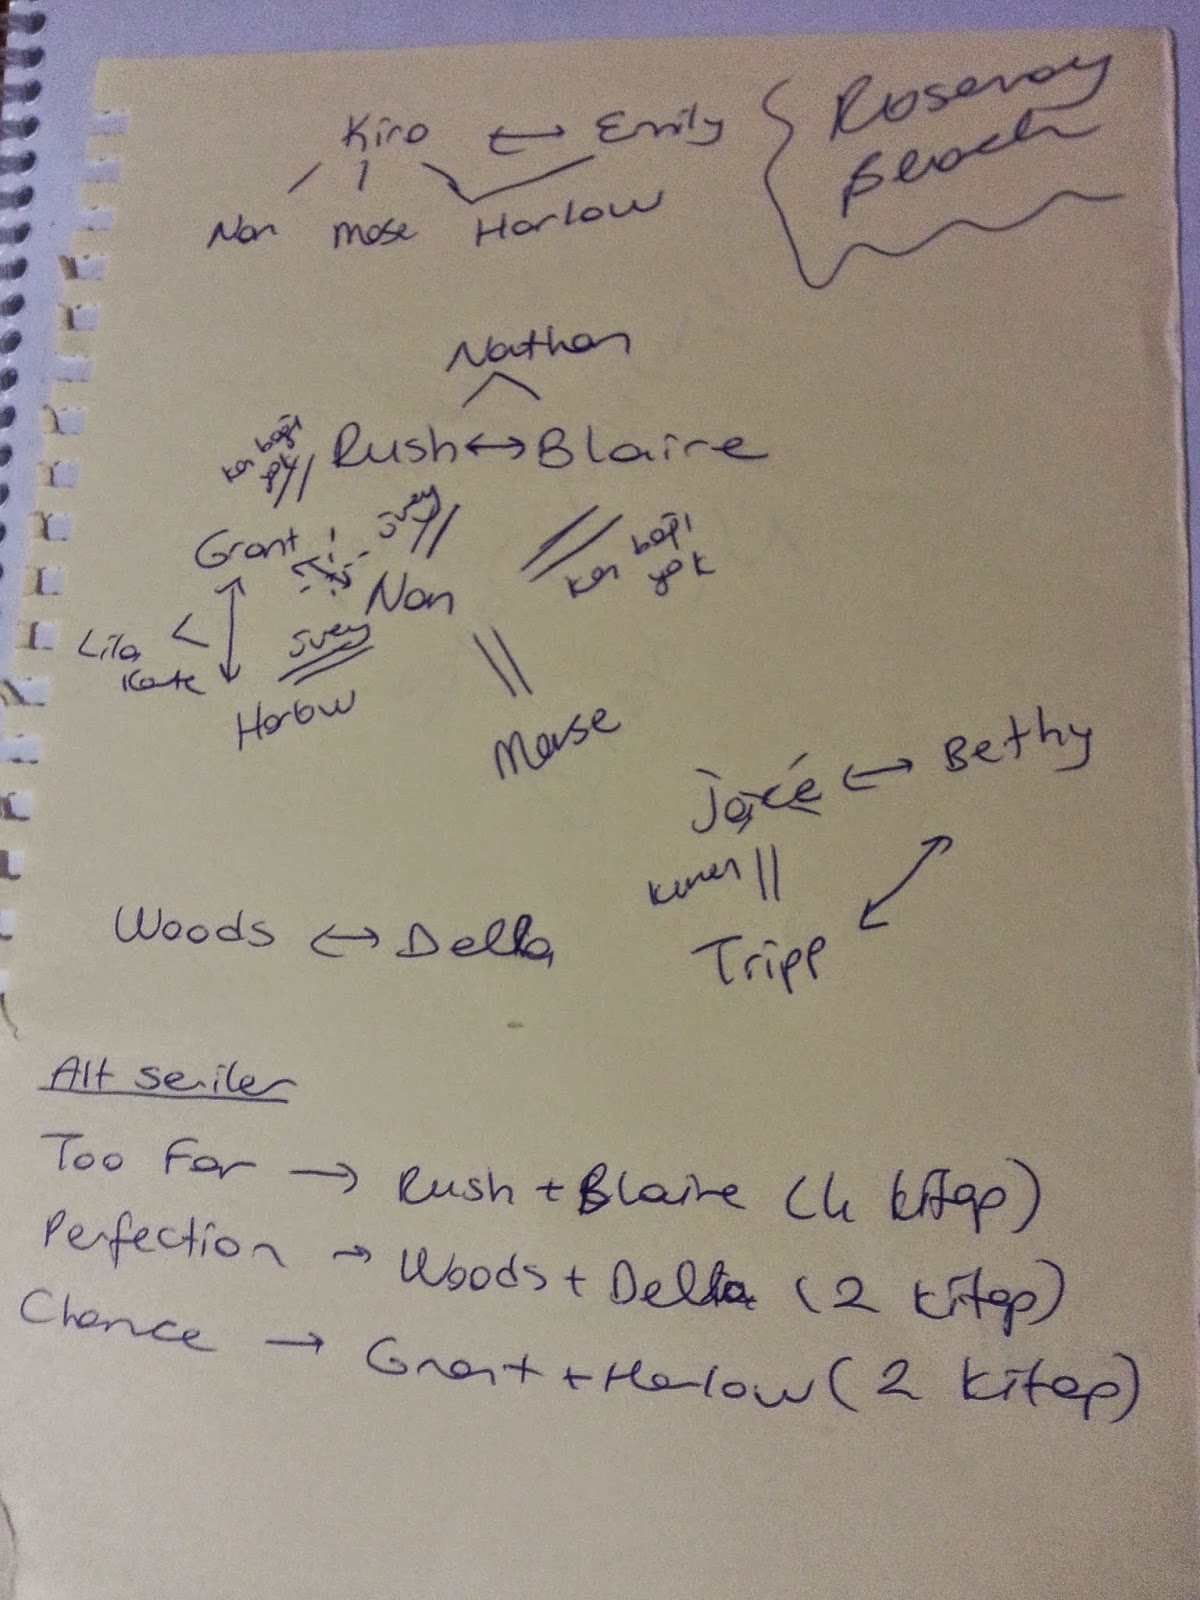 Kiro ↔ Emily
Rosemary
Beach
Nan Mase Harlow
Nathan
Rush ↔ Blaire
kan bağı
yok
Grant
üvey
Nan
kan bağı
yok
Lila
Kate
üvey
Harlow
Mase
Jace ↔ Bethy
kuzen
Woods ↔ Della
Tripp
Alt seriler
Too Far → Rush + Blaire (4 kitap)
Perfection → Woods + Della (2 kitap)
Chance → Grant + Harlow (2 kitap)